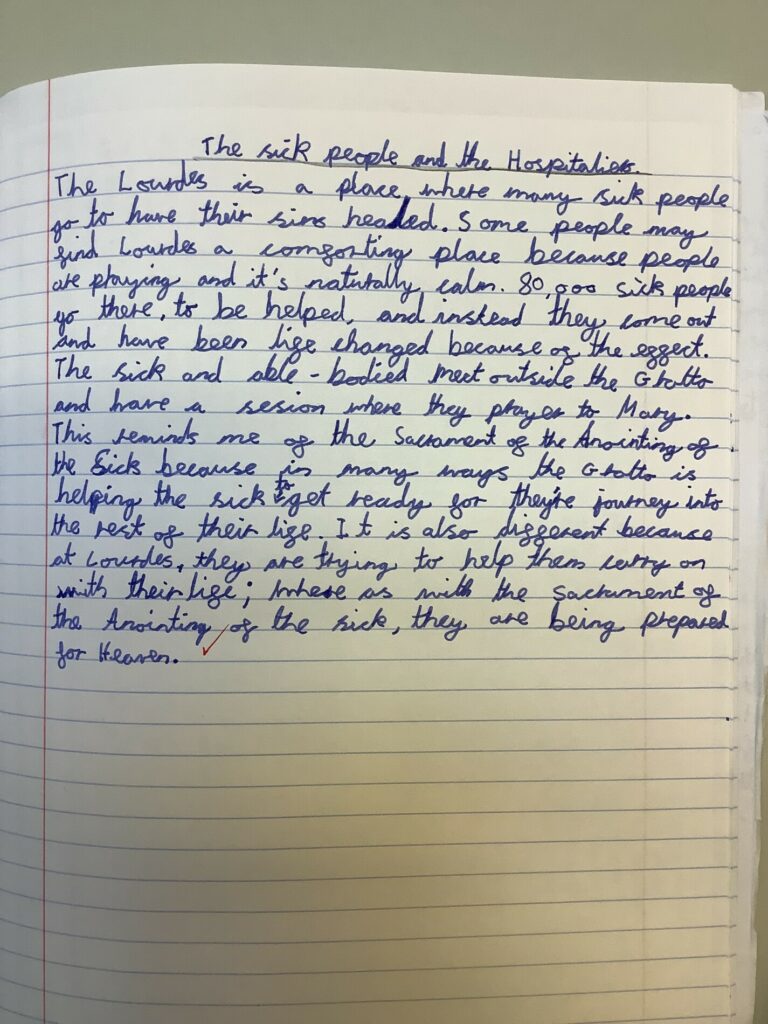 The sick people and the Hospitalies.
The Lourdes is a place, where many sick people
go to have their sins healed. Some people may
find Lourdes a comforting place because people
are praying and it's naturally calm. 80,000 sick people
go there, to be helped, and instead they come out
and have been life changed because of the effect.
The sick and able-bodied meet outside the Grotto
and have a sesion where they prayer to Mary.
This reminds me of the Sacrament of the Anointing of
the Sick because in many ways the Grotto is
helping the sick to get ready for they're journey into
the rest of their life. It is also different because
at Lourdes, they are trying to help them carry on
with their life; where as with the Sacrament of
the Anointing of the sick, they are being prepared
for Heaven.